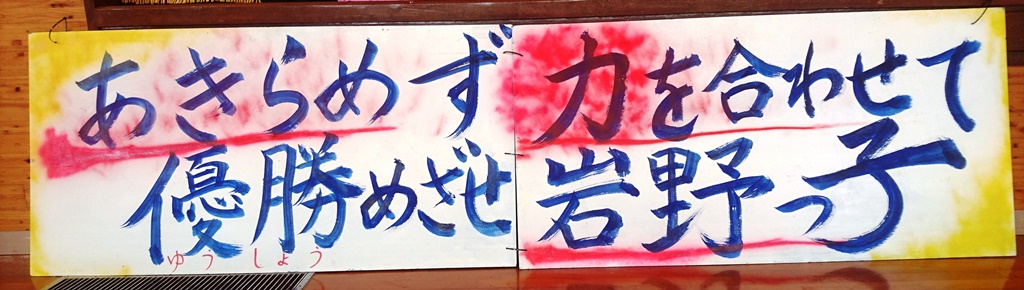 あきらめず 力を合わせて
優勝めざせ 岩野っ子
ゆうしょう